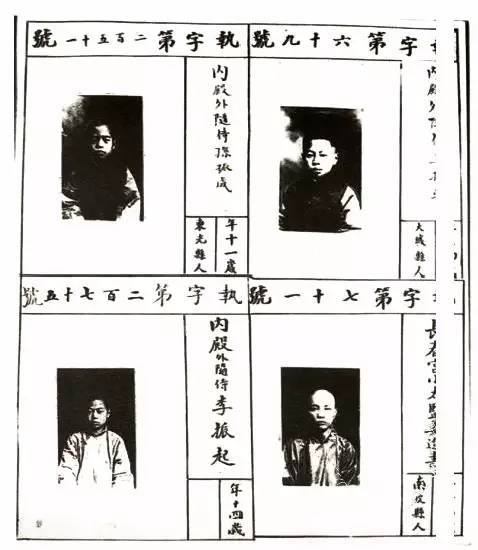 字第六十九號
內殿外隨侍
大城縣人
執字第二百五十一號
內殿外隨侍孫振
年十一歲
東光縣人
字第七十一號
長春宮太監
南皮縣人
執字第二百七十五號
內殿外隨侍李振起
年十四歲